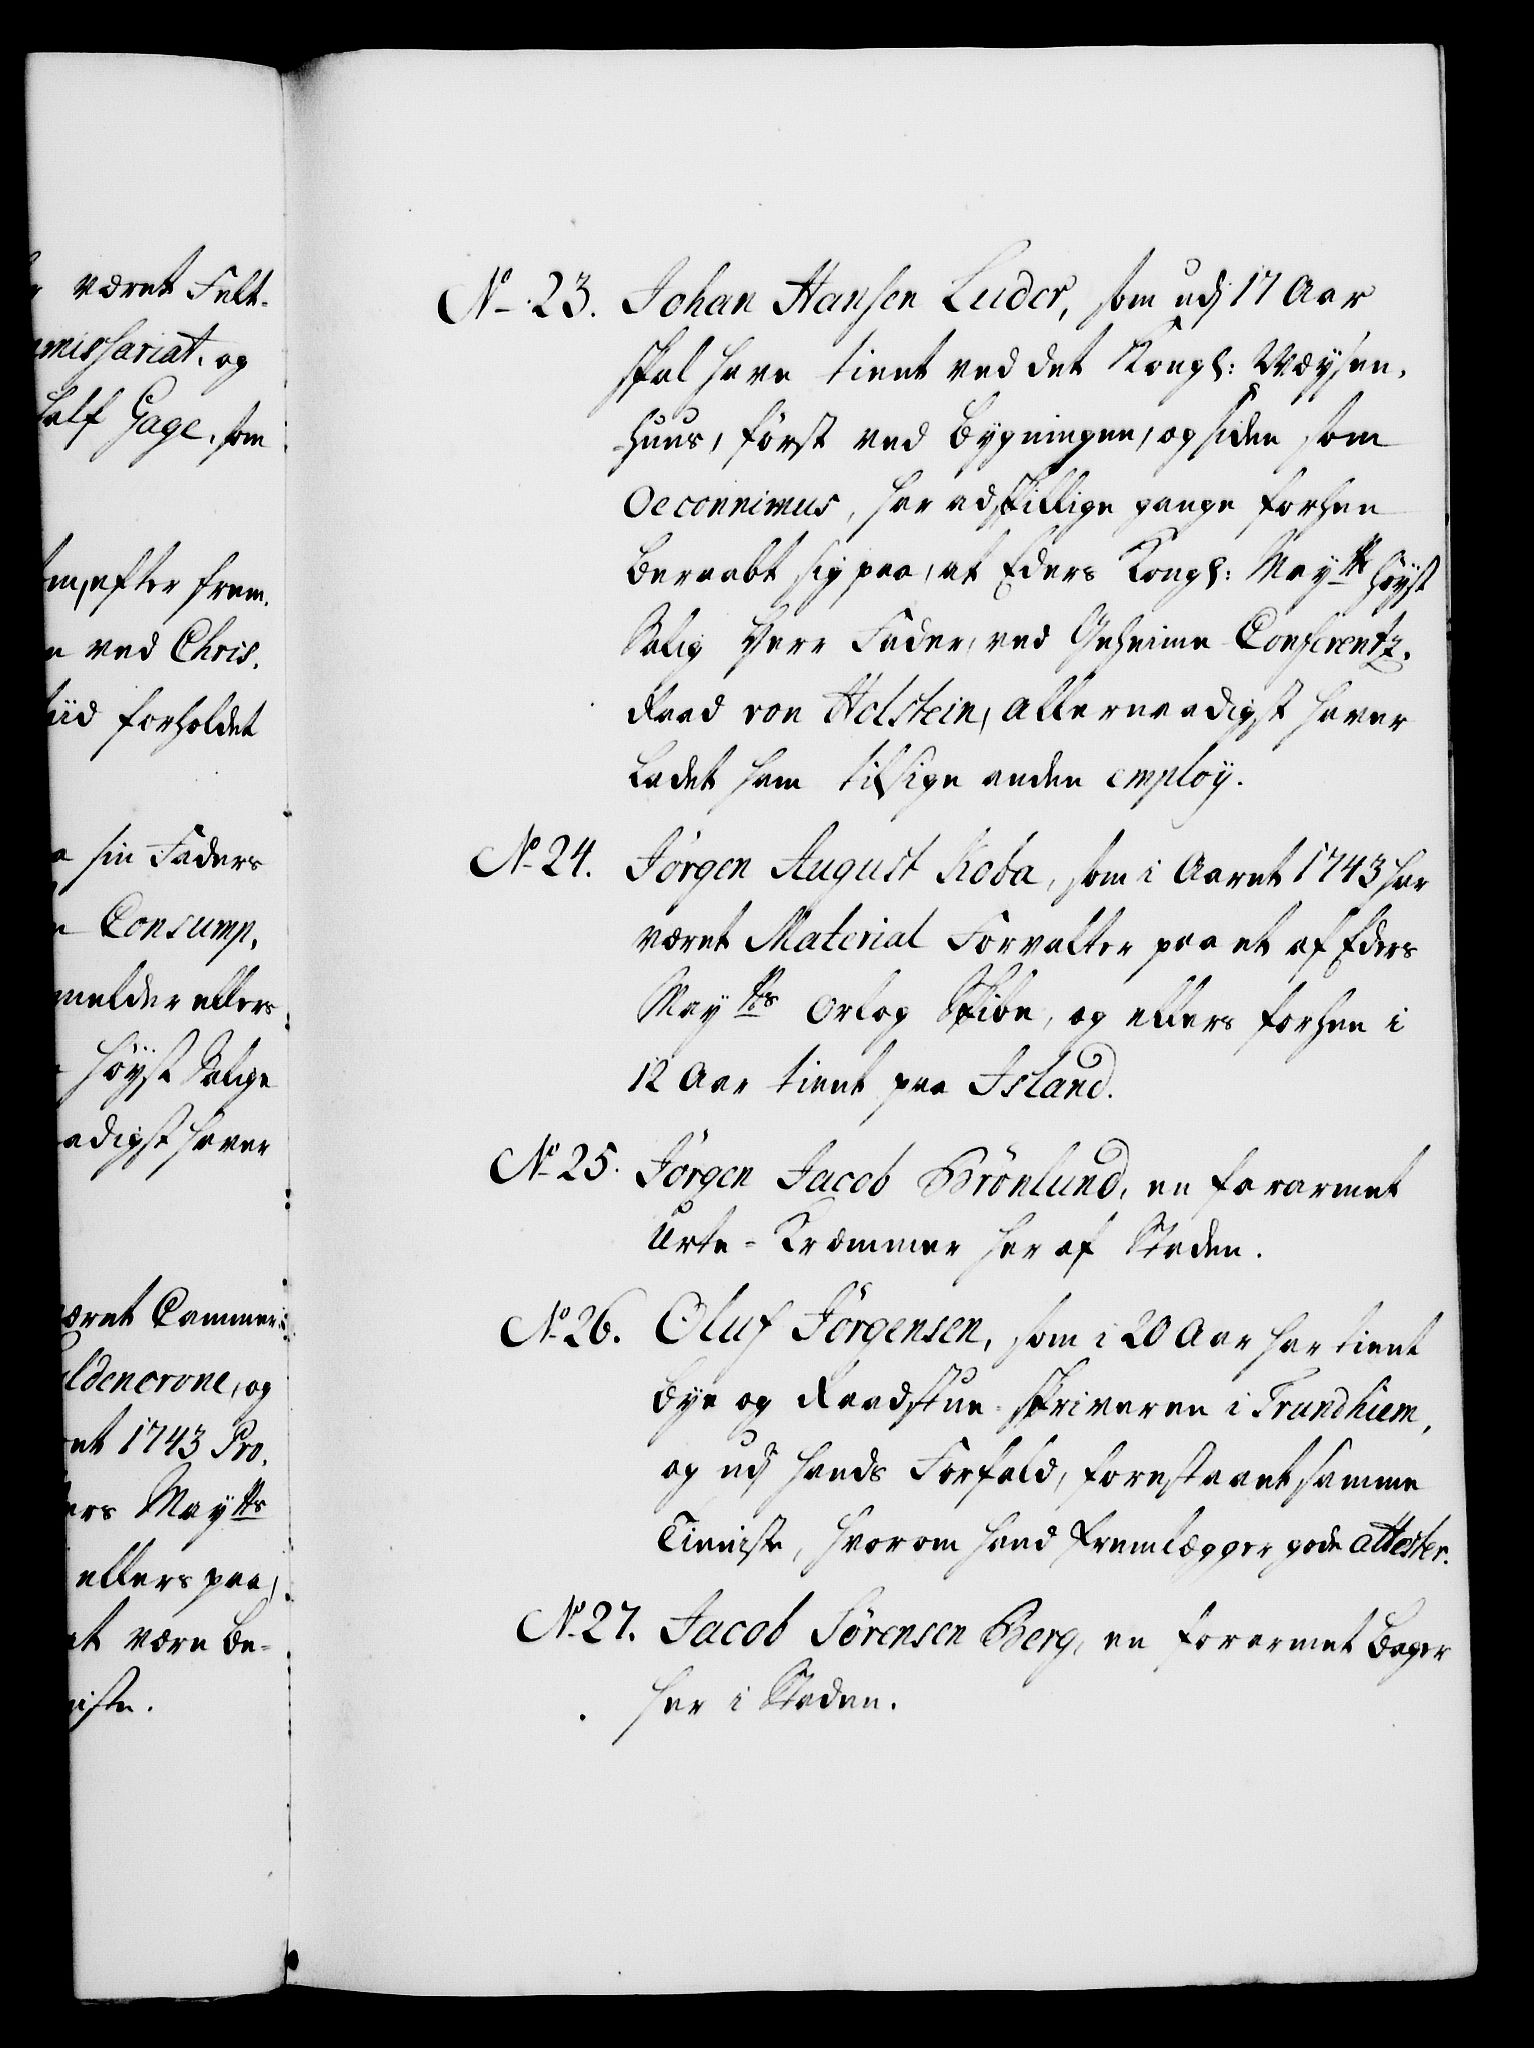 været Felt-
missariat, og
half Gage, som
efter frem-
ved Chris-
tiid forholdet
sin Faders
Consump-
melder ellers
Høyst Salige
adigst haver
været Cammer-
ldencrone, og
et 1743 Pro-
ers May.tts
ellers paa,
at være be-
niste.
No. 23. Johan Hansen Luder, som udj 17 Aar
skal have tient ved det Kongl: Wæysen-
huus, først ved Bygningen, og siden som
Oeconnimus, har adskillige gange forhen
beraabt sig paa, at Eders Kongl: May.tts Høyst
Salig Herr Fader, ved Geheime Conferentz-
Raad von Holstein, allernaadigst haver
Ladet ham tilsige anden employ.
No. 24. Jørgen August Koba, som i Aaret 1743 har
været Material Forvalter paa et af Eders
May.tts Orlog Skibe, og ellers forhen i
12 Aar tient paa Island.
No. 25. Jørgen Jacob Brönlund, en forarmet
Urte-Kræmmer her af Staden.
No. 26. Oluf Jörgensen, som i 20 Aar har tient
Bye og Raadstue-skriveren i Trundhiem,
og udj hands Forfald, forestaaet samme
Tieniste, hvorom hand fremlægger gode attester.
No. 27. Jacob Sörensen Berg, en forarmet Bager
her i Staden.